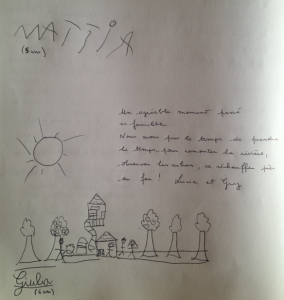 MATTIA
(5 ans)
Un agréable moment passé
en famille
Nous avons pris le temps de prendre
le temps pour remonter la rivière,
observer les arbres, se réchauffer près
du feu ! Lucia et Greg
Giulia
(6 ans)